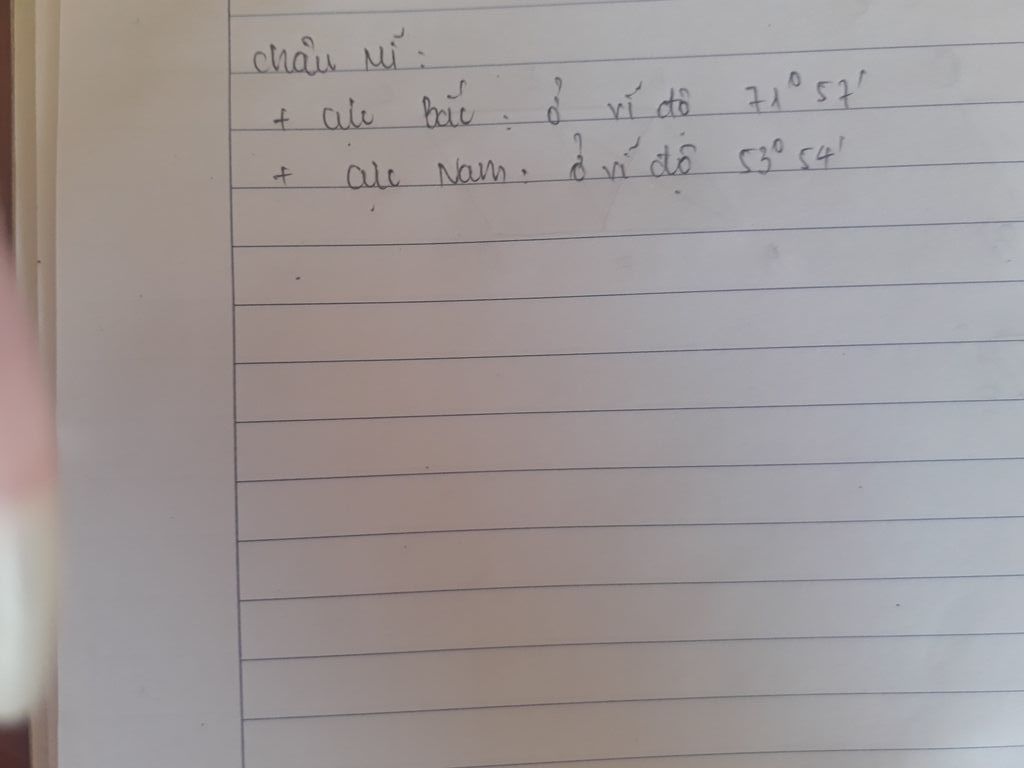 Châu Mĩ :
+ cực Bắc : ở vĩ độ 71° 57'
+ cực Nam : ở vĩ độ 53° 54'